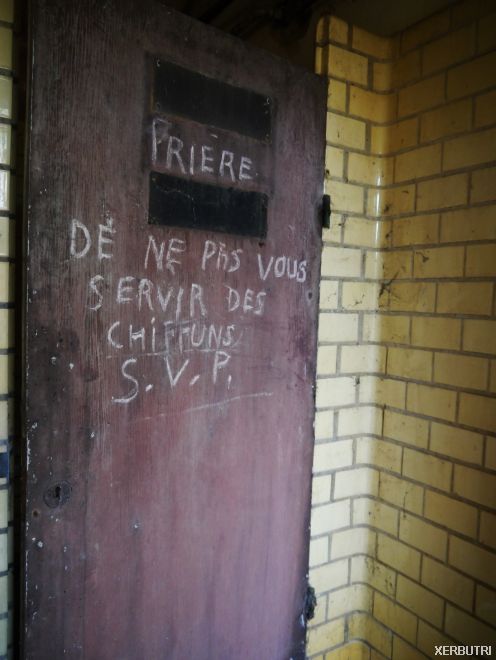 PRIÈRE
DE NE PAS VOUS
SERVIR DES
CHIFFUNS
S.V.P.
XERBUTRI